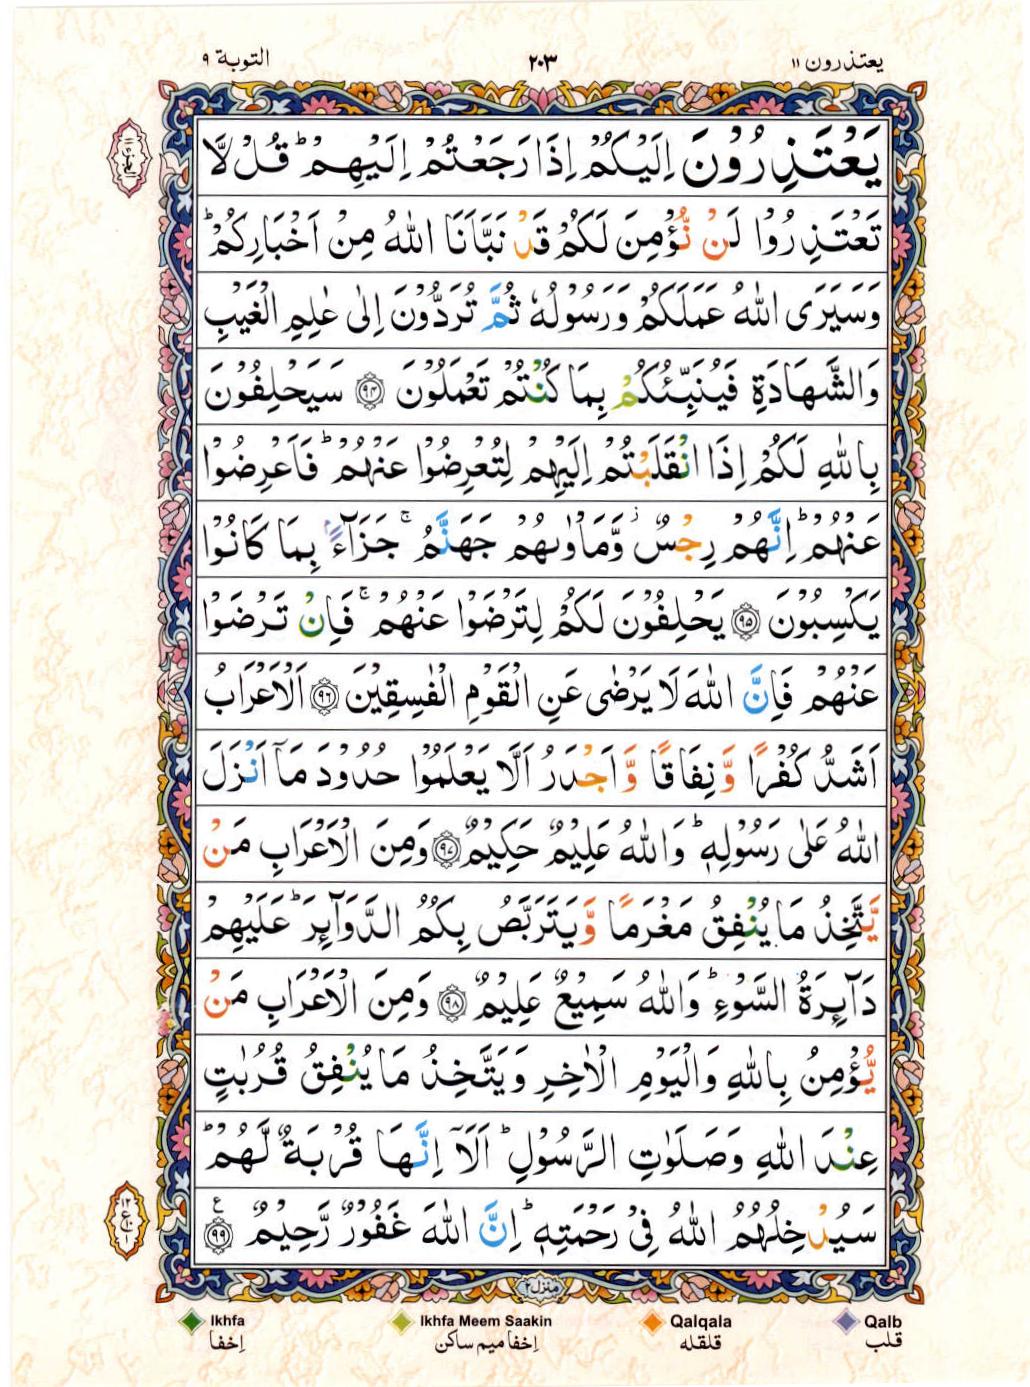 يعتذرون ١١
٢٠٣
التوبة ٩
يَعْتَذِرُوْنَ اِلَيْكُمْ اِذَا رَجَعْتُمْ اِلَيْهِمْ ؕ قُلْ لَّا
تَعْتَذِرُوْا لَنْ نُّؤْمِنَ لَكُمْ قَدْ نَبَّاَنَا اللّٰهُ مِنْ اَخْبَارِكُمْ ؕ
وَسَيَرَى اللّٰهُ عَمَلَكُمْ وَرَسُوْلُهٗ ثُمَّ تُرَدُّوْنَ اِلٰى عٰلِمِ الْغَيْبِ
وَالشَّهَادَةِ فَيُنَبِّئُكُمْ بِمَا كُنْتُمْ تَعْمَلُوْنَ ۝٩٤ سَيَحْلِفُوْنَ
بِاللّٰهِ لَكُمْ اِذَا انْقَلَبْتُمْ اِلَيْهِمْ لِتُعْرِضُوْا عَنْهُمْ ؕ فَاَعْرِضُوْا
عَنْهُمْ ؕ اِنَّهُمْ رِجْسٌ ؗ وَّمَاْوٰىهُمْ جَهَنَّمُ ۚ جَزَآءًۢ بِمَا كَانُوْا
يَكْسِبُوْنَ ۝٩٥ يَحْلِفُوْنَ لَكُمْ لِتَرْضَوْا عَنْهُمْ ۚ فَاِنْ تَرْضَوْا
عَنْهُمْ فَاِنَّ اللّٰهَ لَا يَرْضٰى عَنِ الْقَوْمِ الْفٰسِقِيْنَ ۝٩٦ اَلْاَعْرَابُ
اَشَدُّ كُفْرًا وَّنِفَاقًا وَّاَجْدَرُ اَلَّا يَعْلَمُوْا حُدُوْدَ مَاۤ اَنْزَلَ
اللّٰهُ عَلٰى رَسُوْلِهٖ ؕ وَاللّٰهُ عَلِيْمٌ حَكِيْمٌ ۝٩٧ وَمِنَ الْاَعْرَابِ مَنْ
يَّتَّخِذُ مَا يُنْفِقُ مَغْرَمًا وَّيَتَرَبَّصُ بِكُمُ الدَّوَآئِرَ ؕ عَلَيْهِمْ
دَآئِرَةُ السَّوْءِ ؕ وَاللّٰهُ سَمِيْعٌ عَلِيْمٌ ۝٩٨ وَمِنَ الْاَعْرَابِ مَنْ
يُّؤْمِنُ بِاللّٰهِ وَالْيَوْمِ الْاٰخِرِ وَيَتَّخِذُ مَا يُنْفِقُ قُرُبٰتٍ
عِنْدَ اللّٰهِ وَصَلَوٰتِ الرَّسُوْلِ ؕ اَلَاۤ اِنَّهَا قُرْبَةٌ لَّهُمْ ؕ
سَيُدْخِلُهُمُ اللّٰهُ فِيْ رَحْمَتِهٖ ؕ اِنَّ اللّٰهَ غَفُوْرٌ رَّحِيْمٌ ۝٩٩ ع
منزل ٢
Ikhfa
اِخفا
Ikhfa Meem Saakin
اِخفا میم ساکن
Qalqala
قلقله
Qalb
قلب